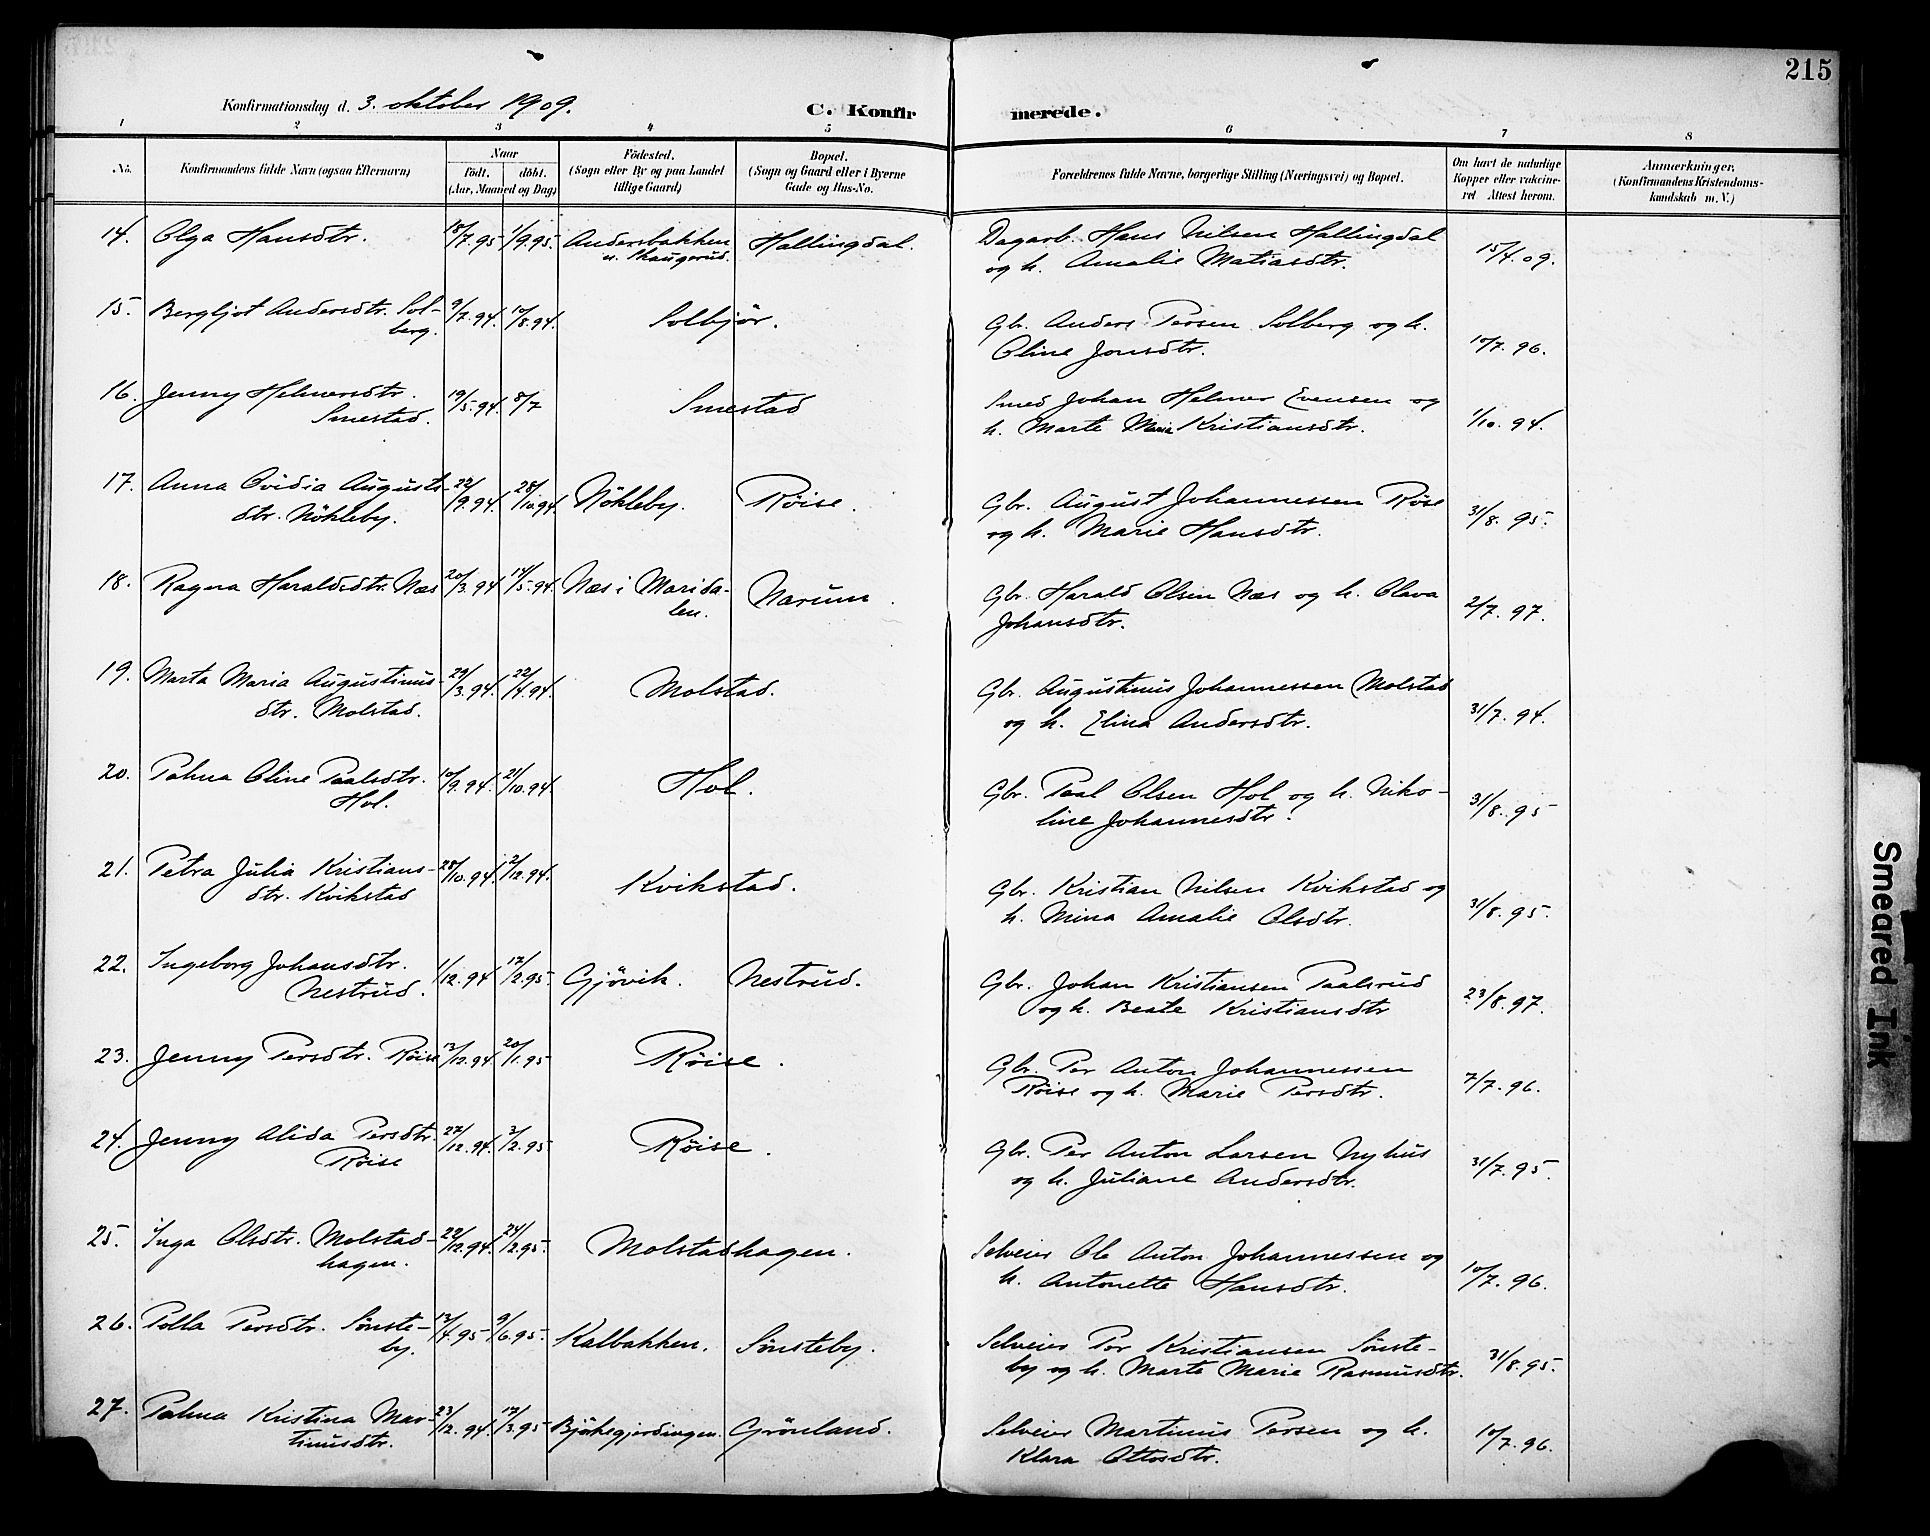 215
Konfirmationsdag d. 3. oktober 1909.
C. Konfir
merede.
1 2 3 4 5 6 7 8
No.
Konfirmandens fulde Navn (ogsaa Efternavn)
Naar
födt. döbt.
(Aar, Maaned og Dag)
Födested.
(Sogn eller By og paa Landet
tillige Gaard)
Bopæl.
(Sogn og Gaard eller i Byerne
Gade og Hus-No.
Forældrenes fulde Navne, borgerlige Stilling (Næringsvei) og Bopæl.
Om havt de naturlige
Kopper eller vakcine-
ret Attest herom.
Anmærkninger,
(Konfirmandens Kristendoms-
kundskab m. V.)
14. Olga Hansdtr. 18/7.95 1/9.95. Andersbakken Hallingdal. Dagarb. Hans Nilsen Hallingdal 15/4.09.
u. Skaugerud. og h. Amalie Matiasdtr.
15. Bergljot Andersdtr. Sol- 9/7.94. 12/8.94. Solbjør. Gbr. Anders Persen Solberg og h. 10/7.96.
berg. Oline Jonsdtr.
16. Jenny Helmersdtr. 19/5.94. 8/7 Smestad Smed Johan Helmer Evensen og 1/10.94.
Smestad. h. Marte Maria Kristiansdtr.
17. Anna Ovidia Augusts- 22/9.94. 28/10.94. Nökleby. Røise. Gbr. August Johannessen Røse 31/8.95.
dtr. Nökleby. og h. Marie Hansdtr.
18. Ragna Haraldsdtr. Næs 20/3.94 14/5.94. Næs i Marida- Narum. Gbr. Harald Olsen Næs og h. Olava 2/7.97.
len. Johansdtr.
19. Marta Maria Augustinus- 29/3.94. 22/4.94. Molstad. Gbr. Augustinus Johannessen Molstad 31/7.94.
dtr. Molstad. og h. Elina Andersdtr.
20. Palma Oline Paalsdtr. 10/9.94. 21/10.94. Hol. Gbr. Paal Olsen Hol og h. Niko- 31/8.95
Hol. line Johannesdtr.
21. Petra Julia Kristians- 28/10.94. 2/12.94. Kvikstad. Gbr. Kristian Nilsen Kvikstad og 31/8.95.
dtr. Kvikstad h. Mina Amalie Olsdtr.
22. Ingeborg Johansdtr. 1/12.94 17/2.95. Gjøvik. Nestrud. Gbr. Johan Kristiansen Paalsrud 23/8.97.
Nestrud. og h. Beate Kristiansdtr
23. Jenny Persdtr. Røise 13/12.94 20/1.95 Røise. Gbr. Per Anton Johannessen 7/7.96.
Røise og h. Marie Persdtr.
24. Jenny Alida Persdtr. 27/12.94. 3/2.95 Røise. Gbr. Per Anton Larsen Nyhus 31/7.95.
Røise og h. Juliane Andersdtr.
25. Inga Olsdtr. Molstad- 22/12.94. 24/2.95. Molstadhagen. Selveier Ole Anton Johannessen og 10/7.96.
hagen. h. Antonette Hansdtr.
26. Pella Persdtr. Sønste- 13/4.95 9/6.95. Kalbakken. Sønsteby. Selveier Per Kristiansen Sønste- 31/8.95.
by. by og h. Marte Marie Rasmusdtr.
27. Palma Kristina Mar- 23/12.94. 17/3.95 Björkegjerdingen. Grönland. Selveier Martinus Persen og h. 10/7.96.
tinusdtr. Klara Ottosdtr.
Smeared Ink